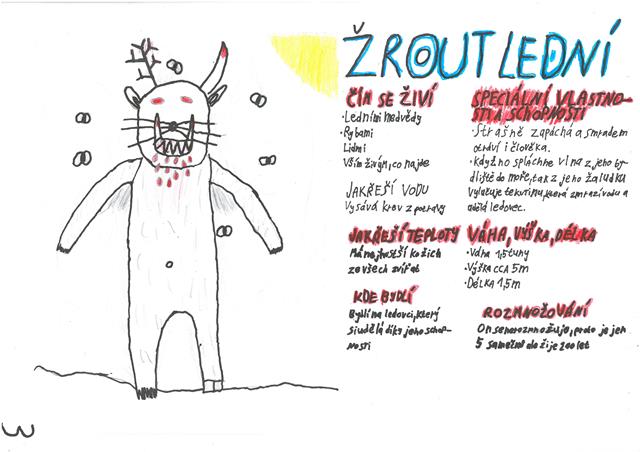 ŽROUT LEDNÍ
ČÍM SE ŽIVÍ
·Ledními medvědy
·Rybami
Lidmi
Vším živým, co najde
JAK ŘEŠÍ VODU
Vysává krev z potravy
JAK ŘEŠÍ TEPLOTY
Má nejhustší kožich
ze všech zvířat
KDE BYDLÍ
Bydlí na ledovci, který
si udělá díky jeho schop-
nosti
SPECIÁLNÍ VLASTNO-
STI A SCHOPNOSTI
·Strašně zapáchá a smradem
otráví i člověka.
·Když ho spláchne vlna z jeho by-
dliště do moře, tak z jeho žaludku
vylučuje tekutinu, která zmrazí vodu a
udělá ledovec.
VÁHA, VÝŠKA, DÉLKA
·Váha 1,5 tuny
·Výška cca 5m
·Délka 1,5m
ROZMNOŽOVÁNÍ
On se nerozmnožuje, proto je jen
5 samečků a dožije 200 let
3